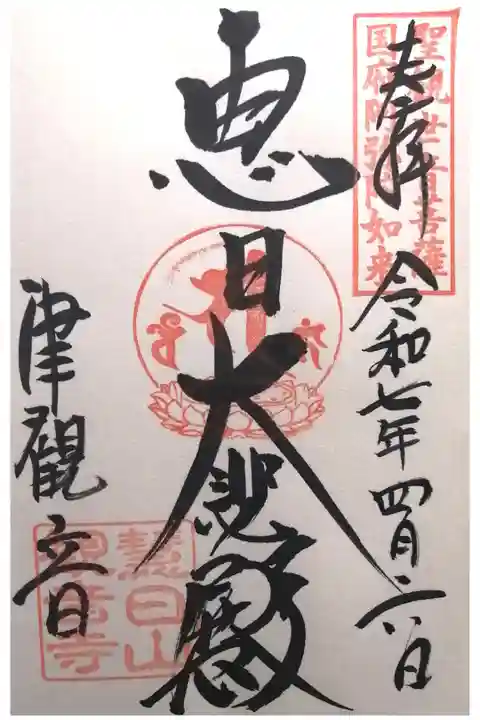 奉拝
令和七年四月六日
聖観世音菩薩
国府阿弥陀如来
恵日
大悲殿
津觀音
慧日山
観音寺